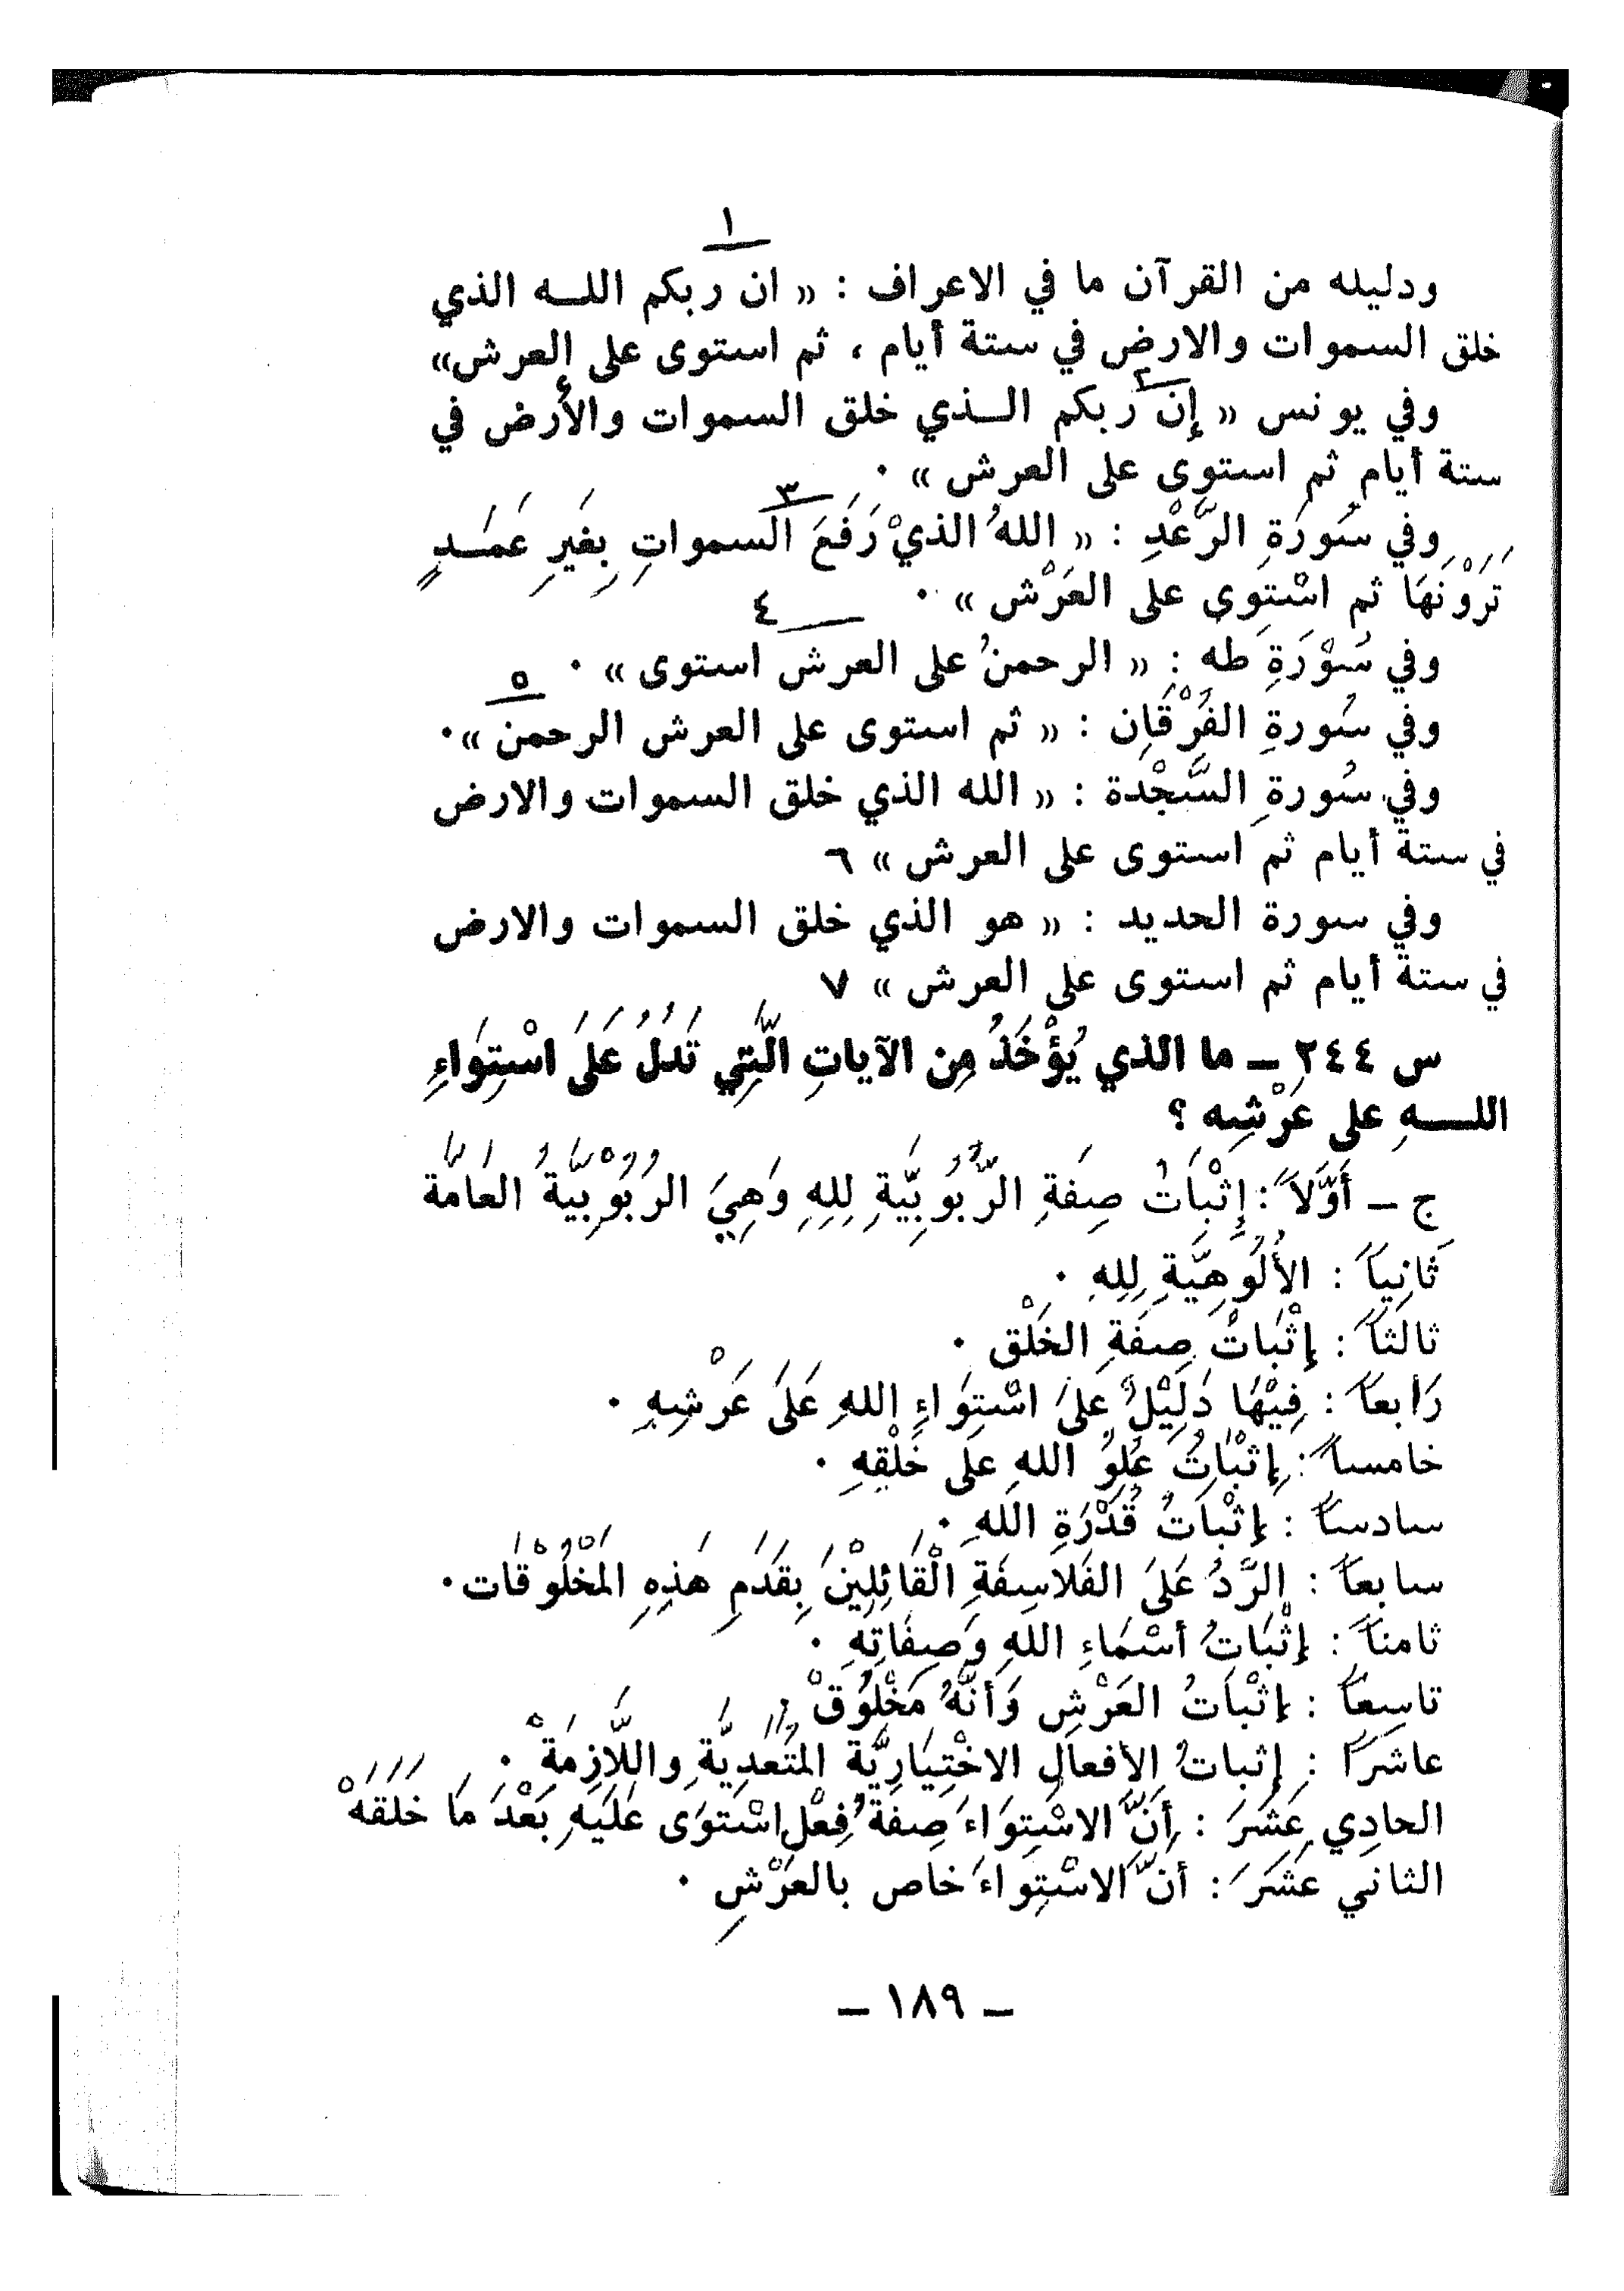 ١
ودليله من القرآن ما في الاعراف : « ان ربكم اللــه الذي
خلق السموات والارض في ستة أيام ، ثم استوى على العرش»
٢
وفي يونس « إن ربكم الــذي خلق السموات والأرض في
ستة أيام ثم استوى على العرش » .
٣
وفي سُورَةِ الرَّعْدِ : « اللهُ الذيْ رَفَعَ السموات بِغَيرِ عَمَــدٍ
تَرَوْنَهَا ثم اسْتوى على العَرْش » .
٤
وفي سُوْرَةِ طَه : « الرحمنُ على العرش استوى » .
٥
وفي سُورةِ الفُرْقَانِ : « ثم استوى على العرش الرحمن ».
وفي سُورةِ السَّجْدة : « الله الذي خلق السموات والارض
في ستة أيام ثم استوى على العرش » ٦
وفي سورة الحديد : « هو الذي خلق السموات والارض
في ستة أيام ثم استوى على العرش » ٧
س ٢٤٤ – ما الذي يُؤْخَذُ مِن الآياتِ الَّتِي تَدُلُ عَلَى اسْتِوَاءِ
اللــــهِ على عَرْشِه ؟
ج – أَوَّلاً : إِثْبَاتُ صِفَةِ الرُّبُوبِيَّةِ لِلهِ وَهِيَ الرُبُوْبِيَّةُ العَامَّة
ثَانِياً : الأُلُوهِيَّةِ لِلهِ .
ثالثاً : إِثْبَاتُ صِفَةِ الخَلْقِ .
رَابعاً : فِيْهَا دَلِيْلٌ عَلىَ اسْتِوَاءِ اللهِ عَلَى عَرْشِهِ .
خامساً : إِثْبَاتُ عُلوُ اللهِ عَلَى خَلْقِهِ .
سادساً : إِثْبَاتُ قُدْرَةِ اللهِ .
سابعاً : الرَّدُ عَلَىَ الفَلاَسِفَةِ الْقَائِلِيْنَ بِقَدَمِ هَذِهِ المَخْلُوْقَات .
ثامناً : إِثْبَاتُ أَسْمَاءِ اللهِ وَصِفَاتِهِ .
تاسِعاً : إِثْبَاتُ العَرْشِ وَأنَّهُ مَخْلُوقْ .
عاشراً : إِثباتُ الأفعالِ الاخْتِيَارِيَّة المُتَعَدِيَّةِ واللَّازِمَةْ .
الحادِي عَشَرَ : أَنَّ الاسْتِوَاءَ صِفَةُ فِعْلٍ اسْتَوَى عَلَيهِ بَعْدَ مَا خَلَقَهْ
الثاني عَشَرَ : أنَّ الاسْتِوَاءَ خاص بالعَرْشِ .
– ١٨٩ –